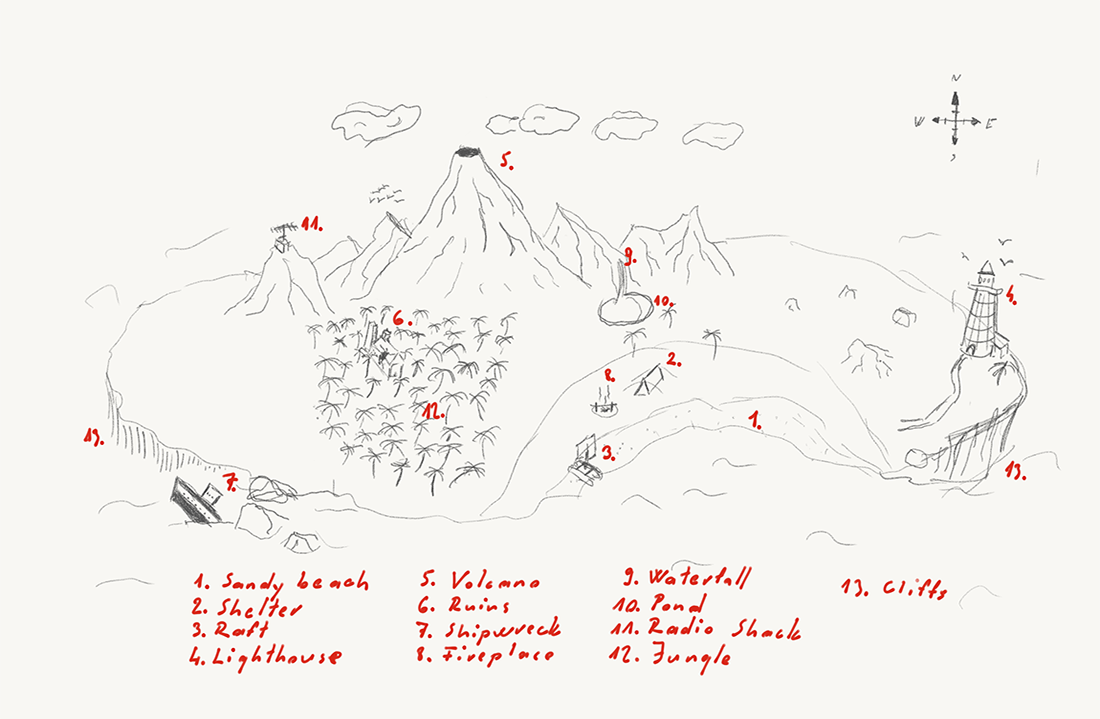 N
W E
S
5.
11.
9.
4.
10.
6.
2.
8.
12.
1.
13.
3.
13.
7.
1. Sandy beach
2. Shelter
3. Raft
4. Lighthouse
5. Volcano
6. Ruins
7. Shipwreck
8. Fireplace
9. Waterfall
10. Pond
11. Radio Shack
12. Jungle
13. Cliffs